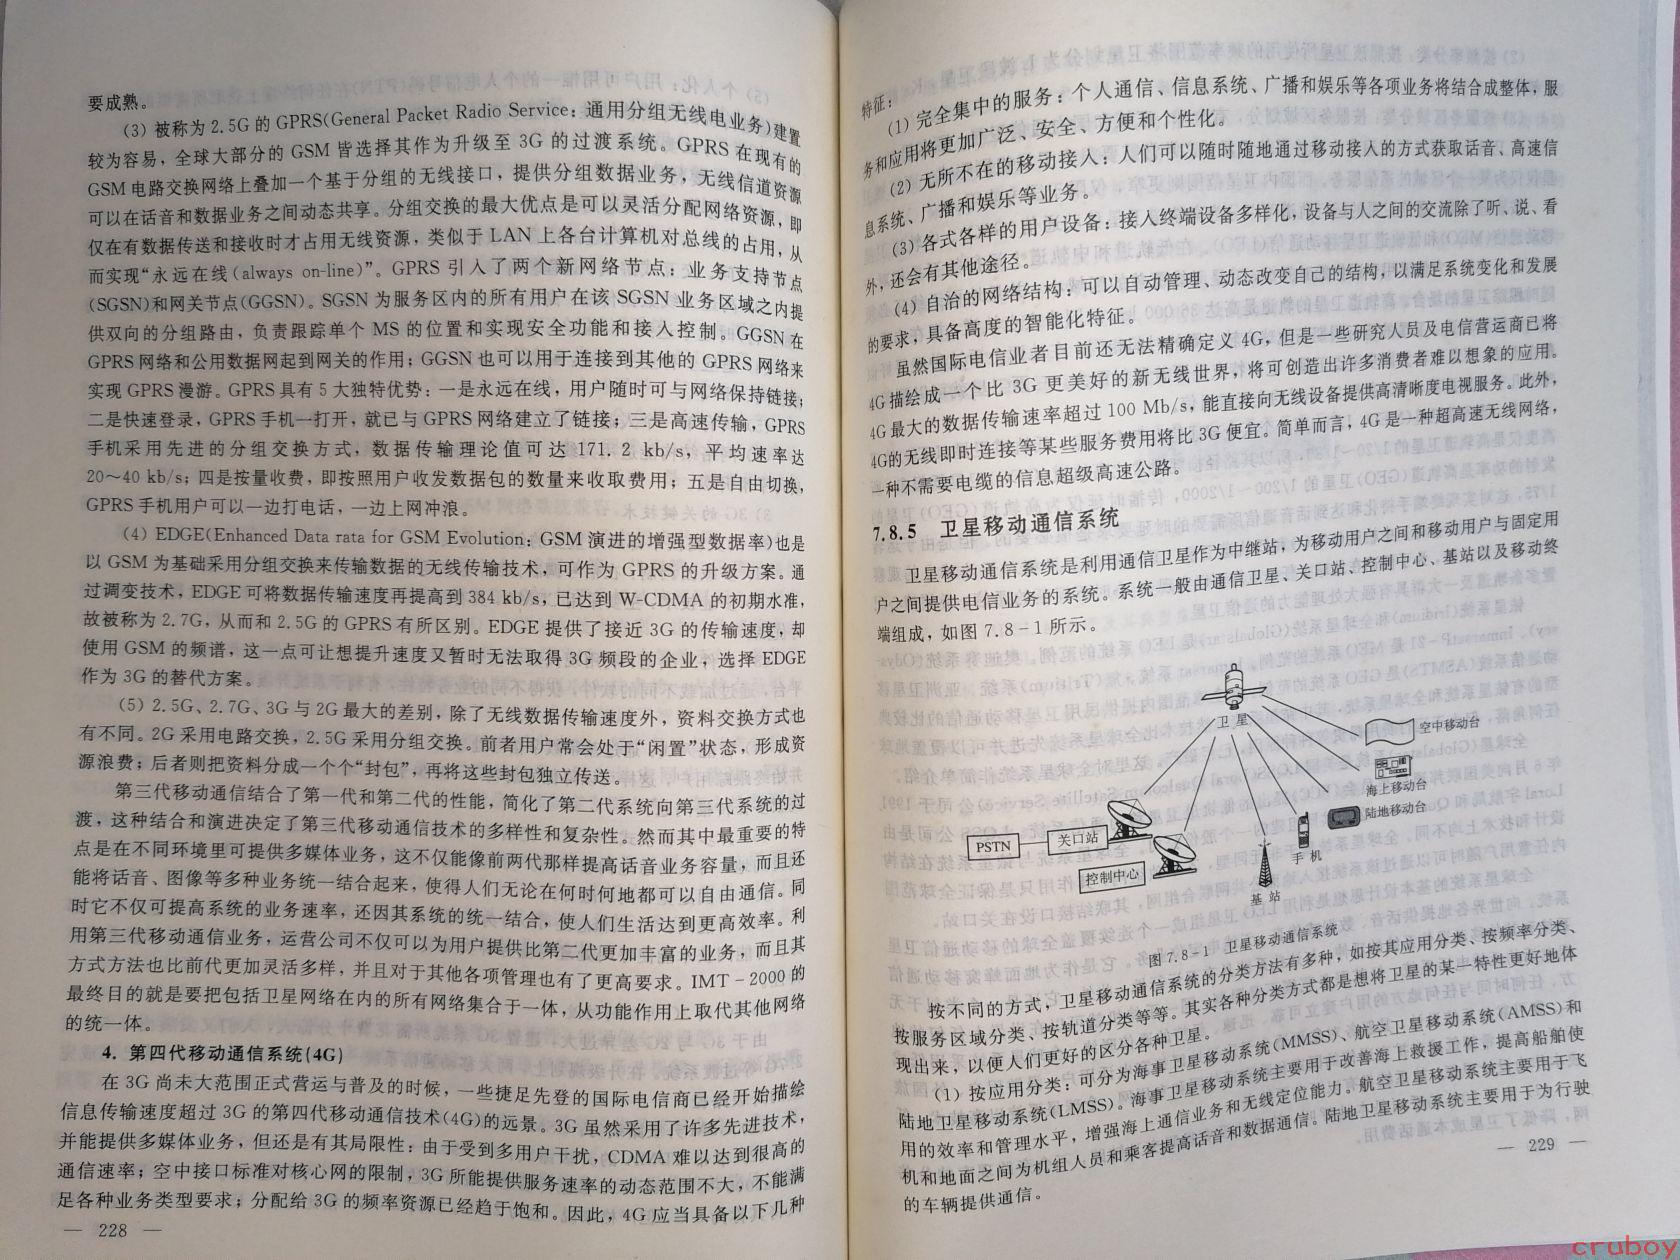 要成熟。
(3) 被称为 2.5G 的 GPRS(General Packet Radio Service：通用分组无线电业务)建置
较为容易，全球大部分的 GSM 皆选择其作为升级至 3G 的过渡系统。GPRS 在现有的
GSM 电路交换网络上叠加一个基于分组的无线接口，提供分组数据业务，无线信道资源
可以在话音和数据业务之间动态共享。分组交换的最大优点是可以灵活分配网络资源，即
仅在有数据传送和接收时才占用无线资源，类似于 LAN 上各台计算机对总线的占用，从
而实现“永远在线(always on-line)”。GPRS 引入了两个新网络节点：业务支持节点
(SGSN)和网关节点(GGSN)。SGSN 为服务区内的所有用户在该 SGSN 业务区域之内提
供双向的分组路由，负责跟踪单个 MS 的位置和实现安全功能和接入控制。GGSN 在
GPRS 网络和公用数据网起到网关的作用；GGSN 也可以用于连接到其他的 GPRS 网络来
实现 GPRS 漫游。GPRS 具有 5 大独特优势：一是永远在线，用户随时可与网络保持链接；
二是快速登录，GPRS 手机一打开，就已与 GPRS 网络建立了链接；三是高速传输，GPRS
手机采用先进的分组交换方式，数据传输理论值可达 171.2 kb/s，平均速率达
20～40 kb/s；四是按量收费，即按照用户收发数据包的数量来收取费用；五是自由切换，
GPRS 手机用户可以一边打电话，一边上网冲浪。
(4) EDGE(Enhanced Data rata for GSM Evolution：GSM 演进的增强型数据率)也是
以 GSM 为基础采用分组交换来传输数据的无线传输技术，可作为 GPRS 的升级方案。通
过调变技术，EDGE 可将数据传输速度再提高到 384 kb/s，已达到 W-CDMA 的初期水准，
故被称为 2.7G，从而和 2.5G 的 GPRS 有所区别。EDGE 提供了接近 3G 的传输速度，却
使用 GSM 的频谱，这一点可让想提升速度又暂时无法取得 3G 频段的企业，选择 EDGE
作为 3G 的替代方案。
(5) 2.5G、2.7G、3G 与 2G 最大的差别，除了无线数据传输速度外，资料交换方式也
有不同。2G 采用电路交换，2.5G 采用分组交换。前者用户常会处于“闲置”状态，形成资
源浪费；后者则把资料分成一个个“封包”，再将这些封包独立传送。
第三代移动通信结合了第一代和第二代的性能，简化了第二代系统向第三代系统的过
渡，这种结合和演进决定了第三代移动通信技术的多样性和复杂性。然而其中最重要的特
点是在不同环境里可提供多媒体业务，这不仅能像前两代那样提高话音业务容量，而且还
能将话音、图像等多种业务统一结合起来，使得人们无论在何时何地都可以自由通信。同
时它不仅可提高系统的业务速率，还因其系统的统一结合，使人们生活达到更高效率。利
用第三代移动通信业务，运营公司不仅可以为用户提供比第二代更加丰富的业务，而且其
方式方法也比前代更加灵活多样，并且对于其他各项管理也有了更高要求。IMT-2000 的
最终目的就是要把包括卫星网络在内的所有网络集合于一体，从功能作用上取代其他网络
的统一体。
4. 第四代移动通信系统(4G)
在 3G 尚未大范围正式营运与普及的时候，一些捷足先登的国际电信商已经开始描绘
信息传输速度超过 3G 的第四代移动通信技术(4G)的远景。3G 虽然采用了许多先进技术，
并能提供多媒体业务，但还是有其局限性：由于受到多用户干扰，CDMA 难以达到很高的
通信速率；空中接口标准对核心网的限制，3G 所能提供服务速率的动态范围不大，不能满
足各种业务类型要求；分配给 3G 的频率资源已经趋于饱和。因此，4G 应当具备以下几种
— 228 —
特征：
(1) 完全集中的服务：个人通信、信息系统、广播和娱乐等各项业务将结合成整体，服
务和应用将更加广泛、安全、方便和个性化。
(2) 无所不在的移动接入：人们可以随时随地通过移动接入的方式获取话音、高速信
息系统、广播和娱乐等业务。
(3) 各式各样的用户设备：接入终端设备多样化，设备与人之间的交流除了听、说、看
外，还会有其他途径。
(4) 自治的网络结构：可以自动管理、动态改变自己的结构，以满足系统变化和发展
的要求，具备高度的智能化特征。
虽然国际电信业者目前还无法精确定义 4G，但是一些研究人员及电信营运商已将
4G 描绘成一个比 3G 更美好的新无线世界，将可创造出许多消费者难以想象的应用。
4G 最大的数据传输速率超过 100 Mb/s，能直接向无线设备提供高清晰度电视服务。此外，
4G的无线即时连接等某些服务费用将比 3G 便宜。简单而言，4G 是一种超高速无线网络，
一种不需要电缆的信息超级高速公路。
7.8.5 卫星移动通信系统
卫星移动通信系统是利用通信卫星作为中继站，为移动用户之间和移动用户与固定用
户之间提供电信业务的系统。系统一般由通信卫星、关口站、控制中心、基站以及移动终
端组成，如图 7.8-1 所示。
卫 星
空中移动台
海上移动台
陆地移动台
手 机
PSTN
关口站
控制中心
基 站
图 7.8-1 卫星移动通信系统
按不同的方式，卫星移动通信系统的分类方法有多种，如按其应用分类、按频率分类、
按服务区域分类、按轨道分类等等。其实各种分类方式都是想将卫星的某一特性更好地体
现出来，以便人们更好的区分各种卫星。
(1) 按应用分类：可分为海事卫星移动系统(MMSS)、航空卫星移动系统(AMSS)和
陆地卫星移动系统(LMSS)。海事卫星移动系统主要用于改善海上救援工作，提高船舶使
用的效率和管理水平，增强海上通信业务和无线定位能力。航空卫星移动系统主要用于飞
机和地面之间为机组人员和乘客提高话音和数据通信。陆地卫星移动系统主要用于为行驶
的车辆提供通信。
— 229 —
cruboy